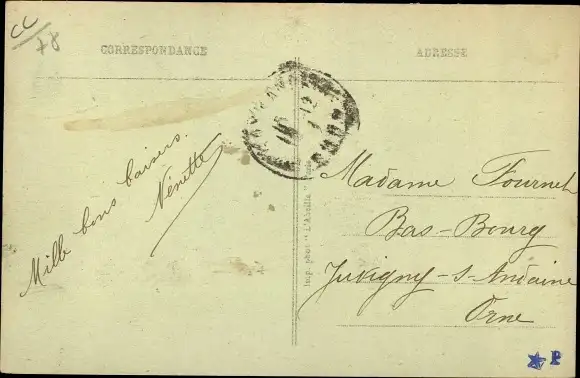 CL
78
CORRESPONDANCE
ADRESSE
Mille bons baisers.
Nénette
Imp. phot "L'Abeille"
Madame Fournet
Bas-Bourg
Juvigny-s-Andaine
Orne
P